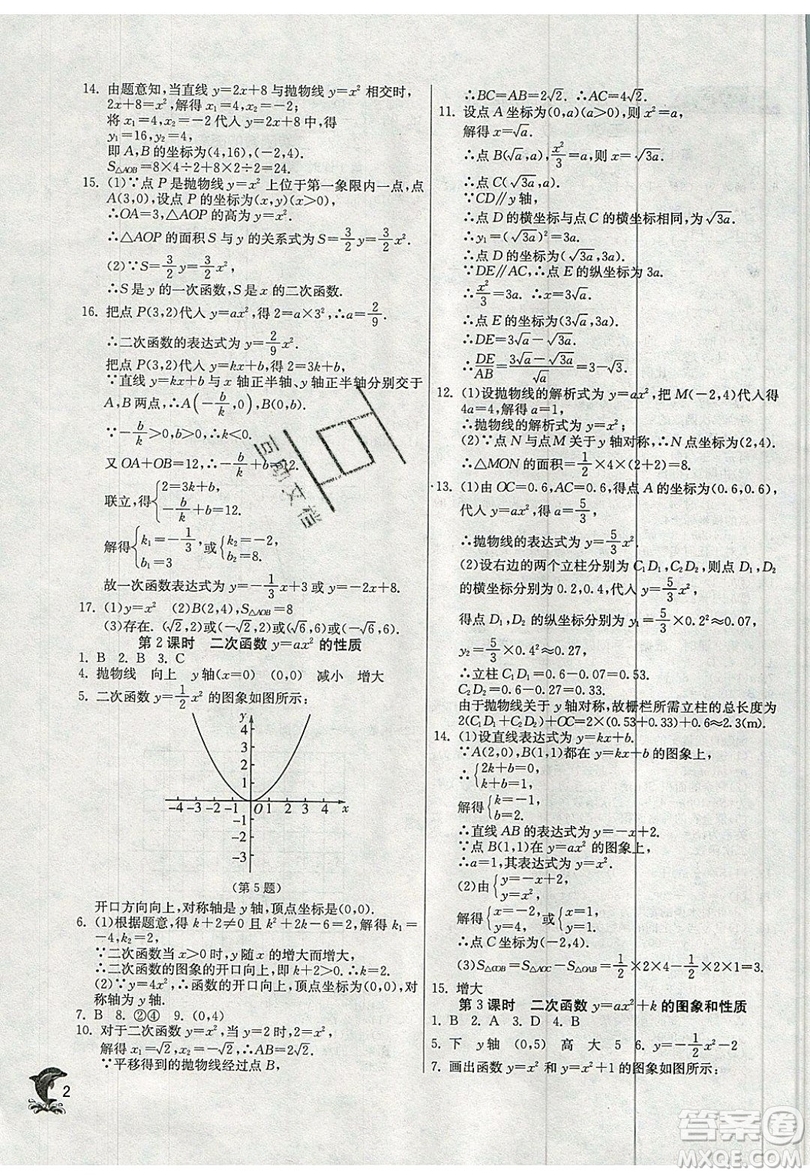 14. 由题意知,当直线 y=2x+8 与抛物线 y=x² 相交时,
2x+8=x²,解得 x₁=4,x₂=-2;
将 x₁=4,x₂=-2 代人 y=2x+8 中,得
y₁=16,y₂=4,
即 A,B 的坐标为(4,16),(-2,4),
S△AOB=8×4÷2+8×2÷2=24.
15. (1)∵点 P 是抛物线 y=x² 上位于第一象限内一点,点
A(3,0),设点 P 的坐标为(x,y)(x>0),
∴OA=3,△AOP 的高为 y=x²,
∴△AOP 的面积 S 与 y 的关系式为 S=3/2 y=3/2 x².
(2)∵S=3/2 y=3/2 x²,
∴S 是 y 的一次函数,S 是 x 的二次函数.
16. 把点 P(3,2)代人 y=ax²,得 2=a×3²,∴a=2/9,
∴二次函数的表达式为 y=2/9 x².
把点 P(3,2)代人 y=kx+b,得 2=3k+b,
∵直线 y=kx+b 与 x 轴正半轴、y 轴正半轴分别交于
A,B 两点,∴A(-b/k,0),B(0,b),
∵-b/k>0,b>0,∴k<0.
又 OA+OB=12,∴-b/k+b=12,
联立,得{2=3k+b, -b/k+b=12,
解得{k₁=-1/3, b₁=3,或{k₂=-2, b₂=8.
故一次函数表达式为 y=-1/3 x+3 或 y=-2x+8.
17. (1)y=x² (2)y=x+2,S△AOB=8
(3)存在. (√2,2)或(-√2,2)或(√6,6)或(-√6,6)
第 2 课时 二次函数 y=ax² 的性质
1. B 2. B 3. C
4. 抛物线 向上 y 轴(x=0) (0,0) 减小 增大
5. 二次函数 y=1/2 x² 的图象如图所示:
y
4
3
2
1
-4 -3 -2 -1 O 1 2 3 4 x
-1
-2
-3
(第 5 题)
开口方向向上,对称轴为 y 轴,顶点坐标为(0,0).
6. (1)根据题意,得 k+2≠0 且 k²+k-4=2,解得 k₁=
-4,k₂=2,
∵二次函数当 x>0 时,y 随 x 的增大而增大,
∴二次函数的图象的开口向上,即 k+2>0,∴k=2.
(2)y=4x²,所以二次函数的顶点坐标为(0,0),对
称轴为 y 轴.
7. B 8. ②④ 9. (0,4)
10. 对于二次函数 y=x²,当 y=2 时,2=x²,
解得 x=±√2,∴AB=2√2.
∵平移得到的抛物线经过点 B,
∴BC=AB=2√2. ∴AC=4√2.
11. 设点 A 坐标为(0,a)(a>0),则 x²=a,
解得 x=√a.
∴点 B(√a,a),x²/3=a,则 x=√3a.
∴点 C(√3a,a).
∵CD∥y 轴,
∴点 D 的横坐标与点 C 的横坐标相同,为√3a.
∴y₁=(√3a)²=3a.
∴点 D 的坐标为(√3a,3a).
∵DE∥AC,∴点 E 的纵坐标为 3a.
∴x²/3=3a,∴x=3√a.
∴点 E 的坐标为(3√a,3a).
∴DE=3√a-√3a.
∴DE/AB=(3√a-√3a)/√a=3-√3.
12. (1)设抛物线的解析式为 y=ax²,把 M(-2,4)代人得
4a=4,解得 a=1,
∴抛物线的解析式为 y=x²;
(2)∵点 N 与点 M 关于 y 轴对称,∴点 N(2,4),
∴△MON 的面积=1/2×4×(2+2)=8.
13. (1)由 OC=0.6,AC=0.6,得点 A 的坐标为(0.6,0.6),
代人 y=ax²,得 a=5/3,
∴抛物线的表达式为 y=5/3 x².
(2)设右边的两个立柱分别为 C₁D₁,C₂D₂,则点 D₁,
D₂ 的横坐标分别为 0.2,0.4,代人 y=5/3 x²,
得点 D₁,D₂ 的纵坐标分别为 y₁=5/3×0.2²≈0.07,
y₂=5/3×0.4²≈0.27,
∴立柱 C₁D₁=0.6-0.07=0.53,
C₂D₂=0.6-0.27=0.33.
由于抛物线关于 y 轴对称,故栅栏所需立柱的总长度为
2(C₁D₁+C₂D₂)+OC=2×(0.53+0.33)+0.6≈2.3(m).
14. (1)设直线表达式为 y=kx+b.
∵A(2,0),B(1,1)都在 y=kx+b 的图象上,
∴{2k+b=0, k+b=1,
解得{k=-1, b=2.
∴直线 AB 的表达式为 y=-x+2.
∵点 B(1,1)在 y=ax² 的图象上,
∴a=1,其表达式为 y=x².
(2)由{y=-x+2, y=x²,
解得{x=-2, y=4,或{x=1, y=1,
∴点 C 坐标为(-2,4).
(3)S△COB=S△AOC-S△OAB=1/2×2×4-1/2×2×1=3.
15. 增大
第 3 课时 二次函数 y=ax²+k 的图象和性质
1. B 2. A 3. D 4. B
5. 下 y 轴 (0,5) 高 大 5 6. y=-1/2 x²-2
7. 画出函数 y=x² 和 y=x²+1 的图象如图所示:
2
答案圈
MXQE.COM